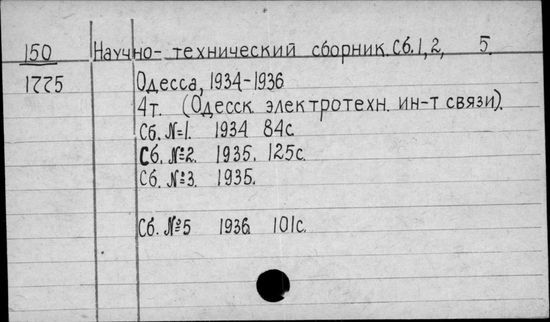 150 Научно-технический сборник. Сб. 1, 2, 5.
1775 Одесса, 1934-1936
4т. (Одесск. электротехн. ин-т связи).
Сб. №1. 1934 84с.
Сб. №2. 1935. 125с.
Сб. №3. 1935.
Сб. №5 1936 101с.